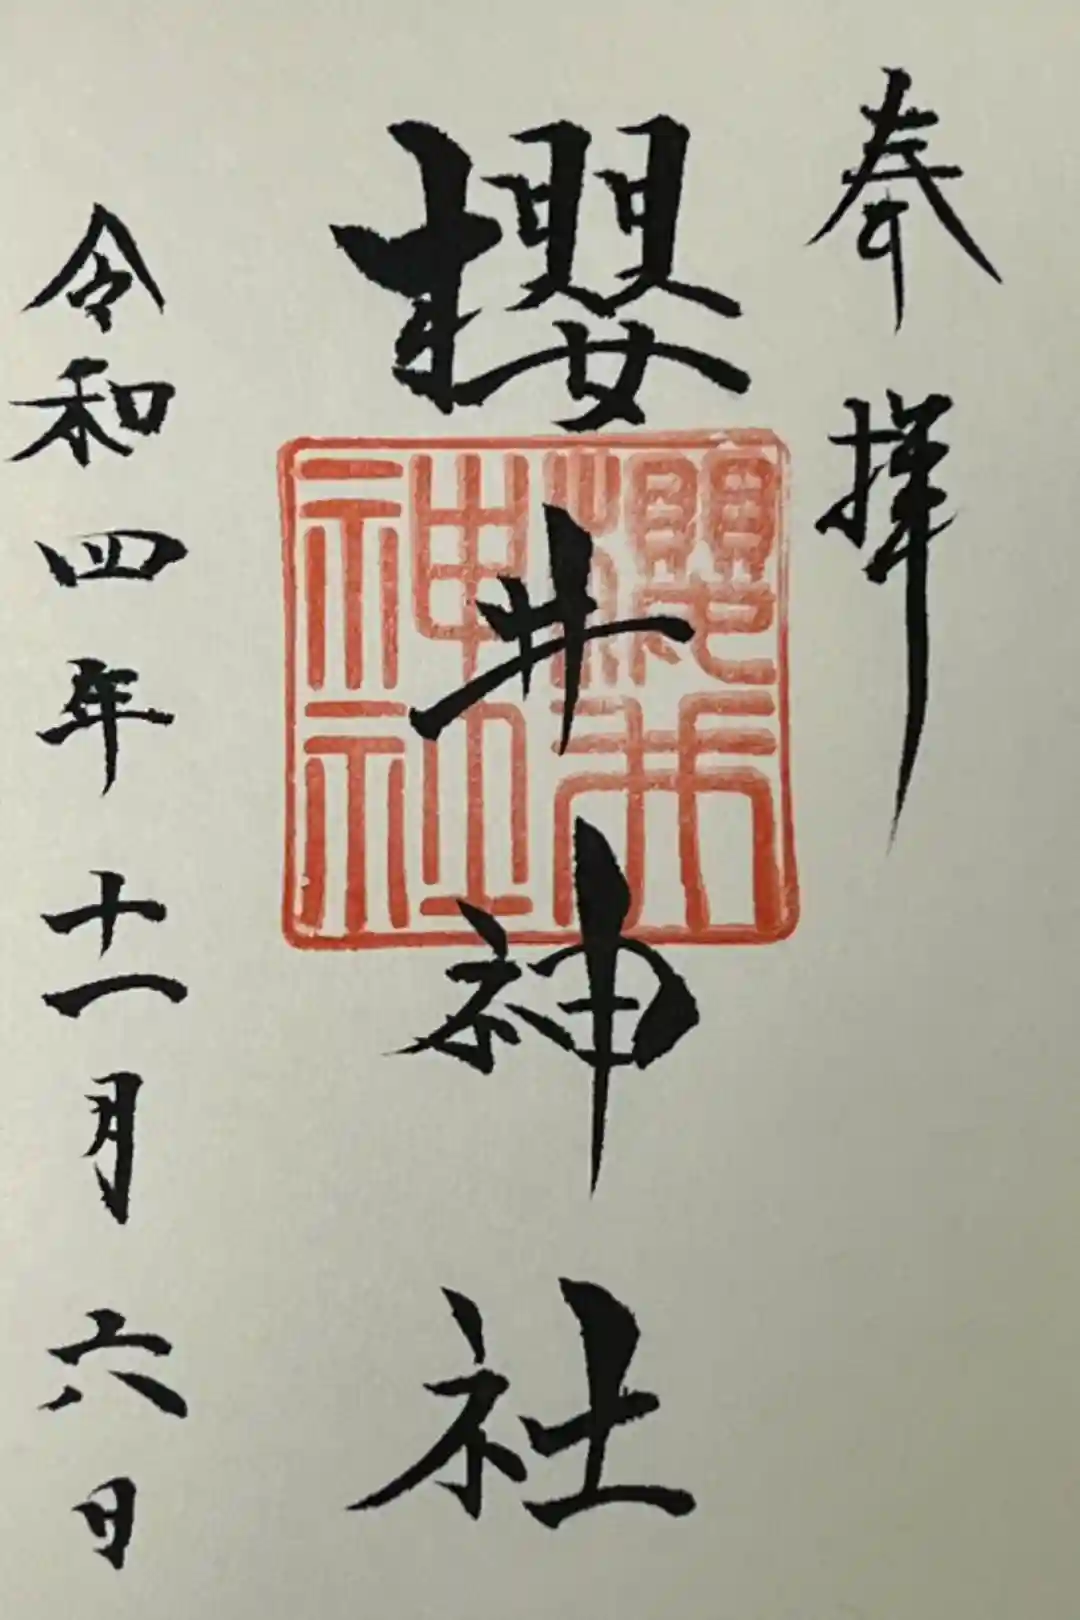 奉拝
櫻井神社
櫻井
神社
令和四年十一月六日